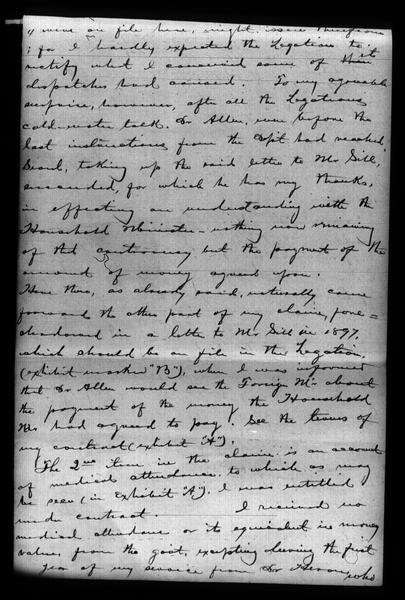 "were on file here, might issue therefrom
; for I hardly expected the Legation to
ratify what I conceived some of their
dispatches had caused. To my agreeable
surprise, however, after all the Legations
cold-water talk. Dr Allen, even before the
last instructions from the Dpt had reached
Seoul, taking up the said letter to Mr Sill,
succeeded, for which he has my thanks,
in effecting an understanding with the
Household Minister - nothing now remaining
of that controversy but the payment of the
amount of money agreed upon.
Here then, as already said, naturally came
forward the other part of my claim, fore=
shadowed in a letter to Mr Sill in 1897,
which should be on file in the Legation,
(exhibit marked "B"), when I was informed
that Dr Allen would see the Foreign Mr about
the payment of the money the Household
Mr had agreed to pay. See the terms of
my contract (exhibit "A").
The 2nd item in the claim is on account
of medical attendance to which as may
be seen (in exhibit "A"), I was entitled
under contract. I received no
medical attendance or its equivalent in money
value, from the govt, excepting during the first
year of my service from Dr Heron, who